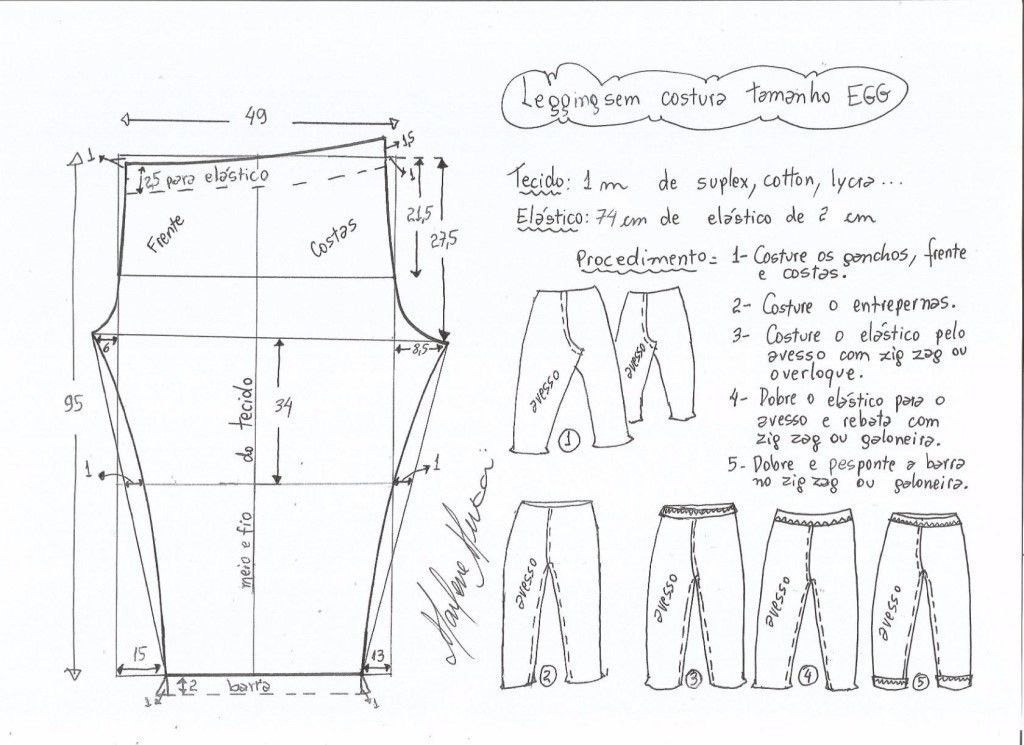 Legging sem costura tamanho EGG
Tecido: 1 m de suplex, cotton, lycra...
Elástico: 74 cm de elástico de 2 cm
Procedimento= 1- Costure os ganchos, frente
e costas.
2- Costure o entrepernas.
3- Costure o elástico pelo
avesso com zig zag ou
overloque.
4- Dobre o elástico para o
avesso e rebata com
zig zag ou galoneira.
5- Dobre e pesponte a barra
no zig zag ou galoneira.
49
1
1,5
2,5 para elástico
1
Frente
Costas
21,5
27,5
6
8,5
95
34
meio e fio do tecido
1
1
15
13
2
barra
1
1
avesso
avesso
1
avesso
2
avesso
3
avesso
4
avesso
5